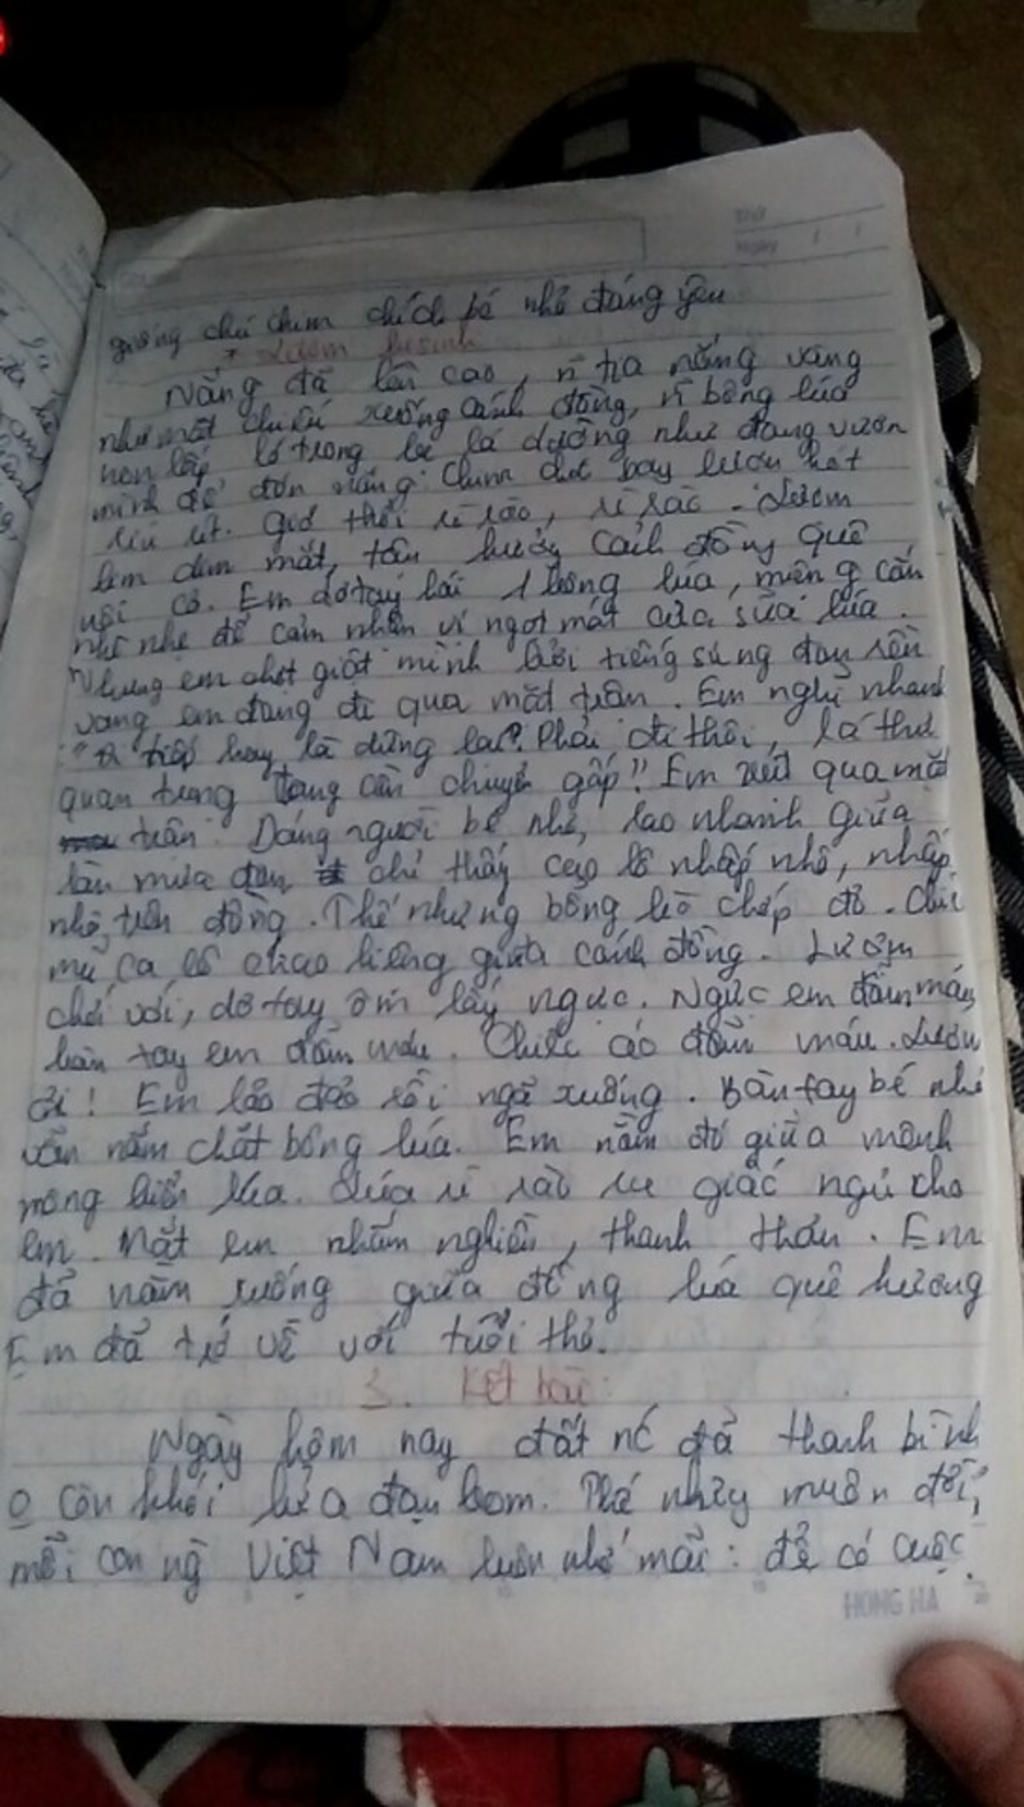 giống chú chim chích bé nhỏ đáng yêu
Thứ
Ngày
* Lượm hi sinh
Nắng đã lên cao, n tia nắng vàng
như mật chiếu xuống cánh đồng, n bông lúa
non lấp ló trong lá dường như đang vươn
mình để đón nắng. Chim chót bay lượn hót
líu lít. Gió thổi rì rào, rì rào. Lượm
lim dim mắt, tận hưởng cánh đồng quê
nội cỏ. Em đơ tay hái 1 bông lúa, miệng cắn
nhè nhẹ để cảm nhận vị ngọt mát của sữa lúa.
Nhưng em chợt giật mình bởi tiếng súng đạn rền
vang em đang đi qua mặt trận. Em nghĩ nhanh
"Đi tiếp hay là dừng lại? Phải đi thôi, lá thư
quan trọng đang cần chuyển gấp!" Em vút qua mặt
trận. Dáng người bé nhỏ, lao nhanh giữa
làn mưa đạn chỉ thấy calo lô nhấp nhô, nhấp
nhô trên đồng. Thế nhưng bỗng lòe chớp đỏ. Chiếc
mũ ca lô chao liệng giữa cánh đồng. Lượm
chới với, đơ tay ôm lấy ngực. Ngực em đẫm máu,
bàn tay em đẫm máu. Chiếc áo đẫm máu. Lượm
ơi! Em lảo đảo rồi ngã xuống. Bàn tay bé nhỏ
vẫn nắm chặt bông lúa. Em nằm đó giữa mênh
mông biển lúa. Lúa rì rào ru giấc ngủ cho
em. Mắt em nhắm nghiền, thanh thản. Em
đã nằm xuống giữa đồng lúa quê hương
Em đã trở về với tuổi thơ.
3. Kết bài:
Ngày hôm nay đất nc đã thanh bình
o còn khói lửa đạn bom. Thế nhưng muôn đời,
mỗi con ng Việt Nam luôn nhớ mãi: để có cuộc
HONG HA